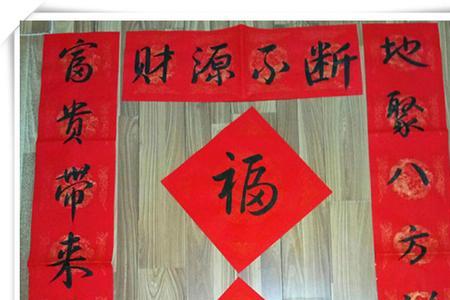 财源不断
富贵带来
地聚八方
福